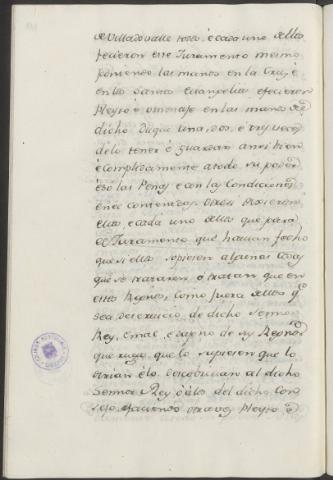 de Villadovalle todos, e cada uno dellos
ficieron este Juramento mesmo
poniendo las manos en la Cruz, e
en los Santos Euangelios e ficieron
Pleyto e omenaje en las manos del
dicho Duque una, dos, e tres veces
de lo tener é guardar ansi bien
e complidamente a todo su poder
so las Penas, e con las Condiciones
en el contenidas. Otrosi dixeron
ellos, e cada uno dellos que para
el Juramento que hauian fecho
que si ellos supiesen algunas cosas
que se trataren, o tratan que en
estos Reynos, como fuera dellos q.
sea deservicio de dicho Señor
Rey, e mal, e daño de sus Reynos
que luego que lo supiesen que lo
dirian é lo descobririan al dicho
Sennor Rey, o á los del dicho Con
sejo, faciendo otra vez Pleyto, é